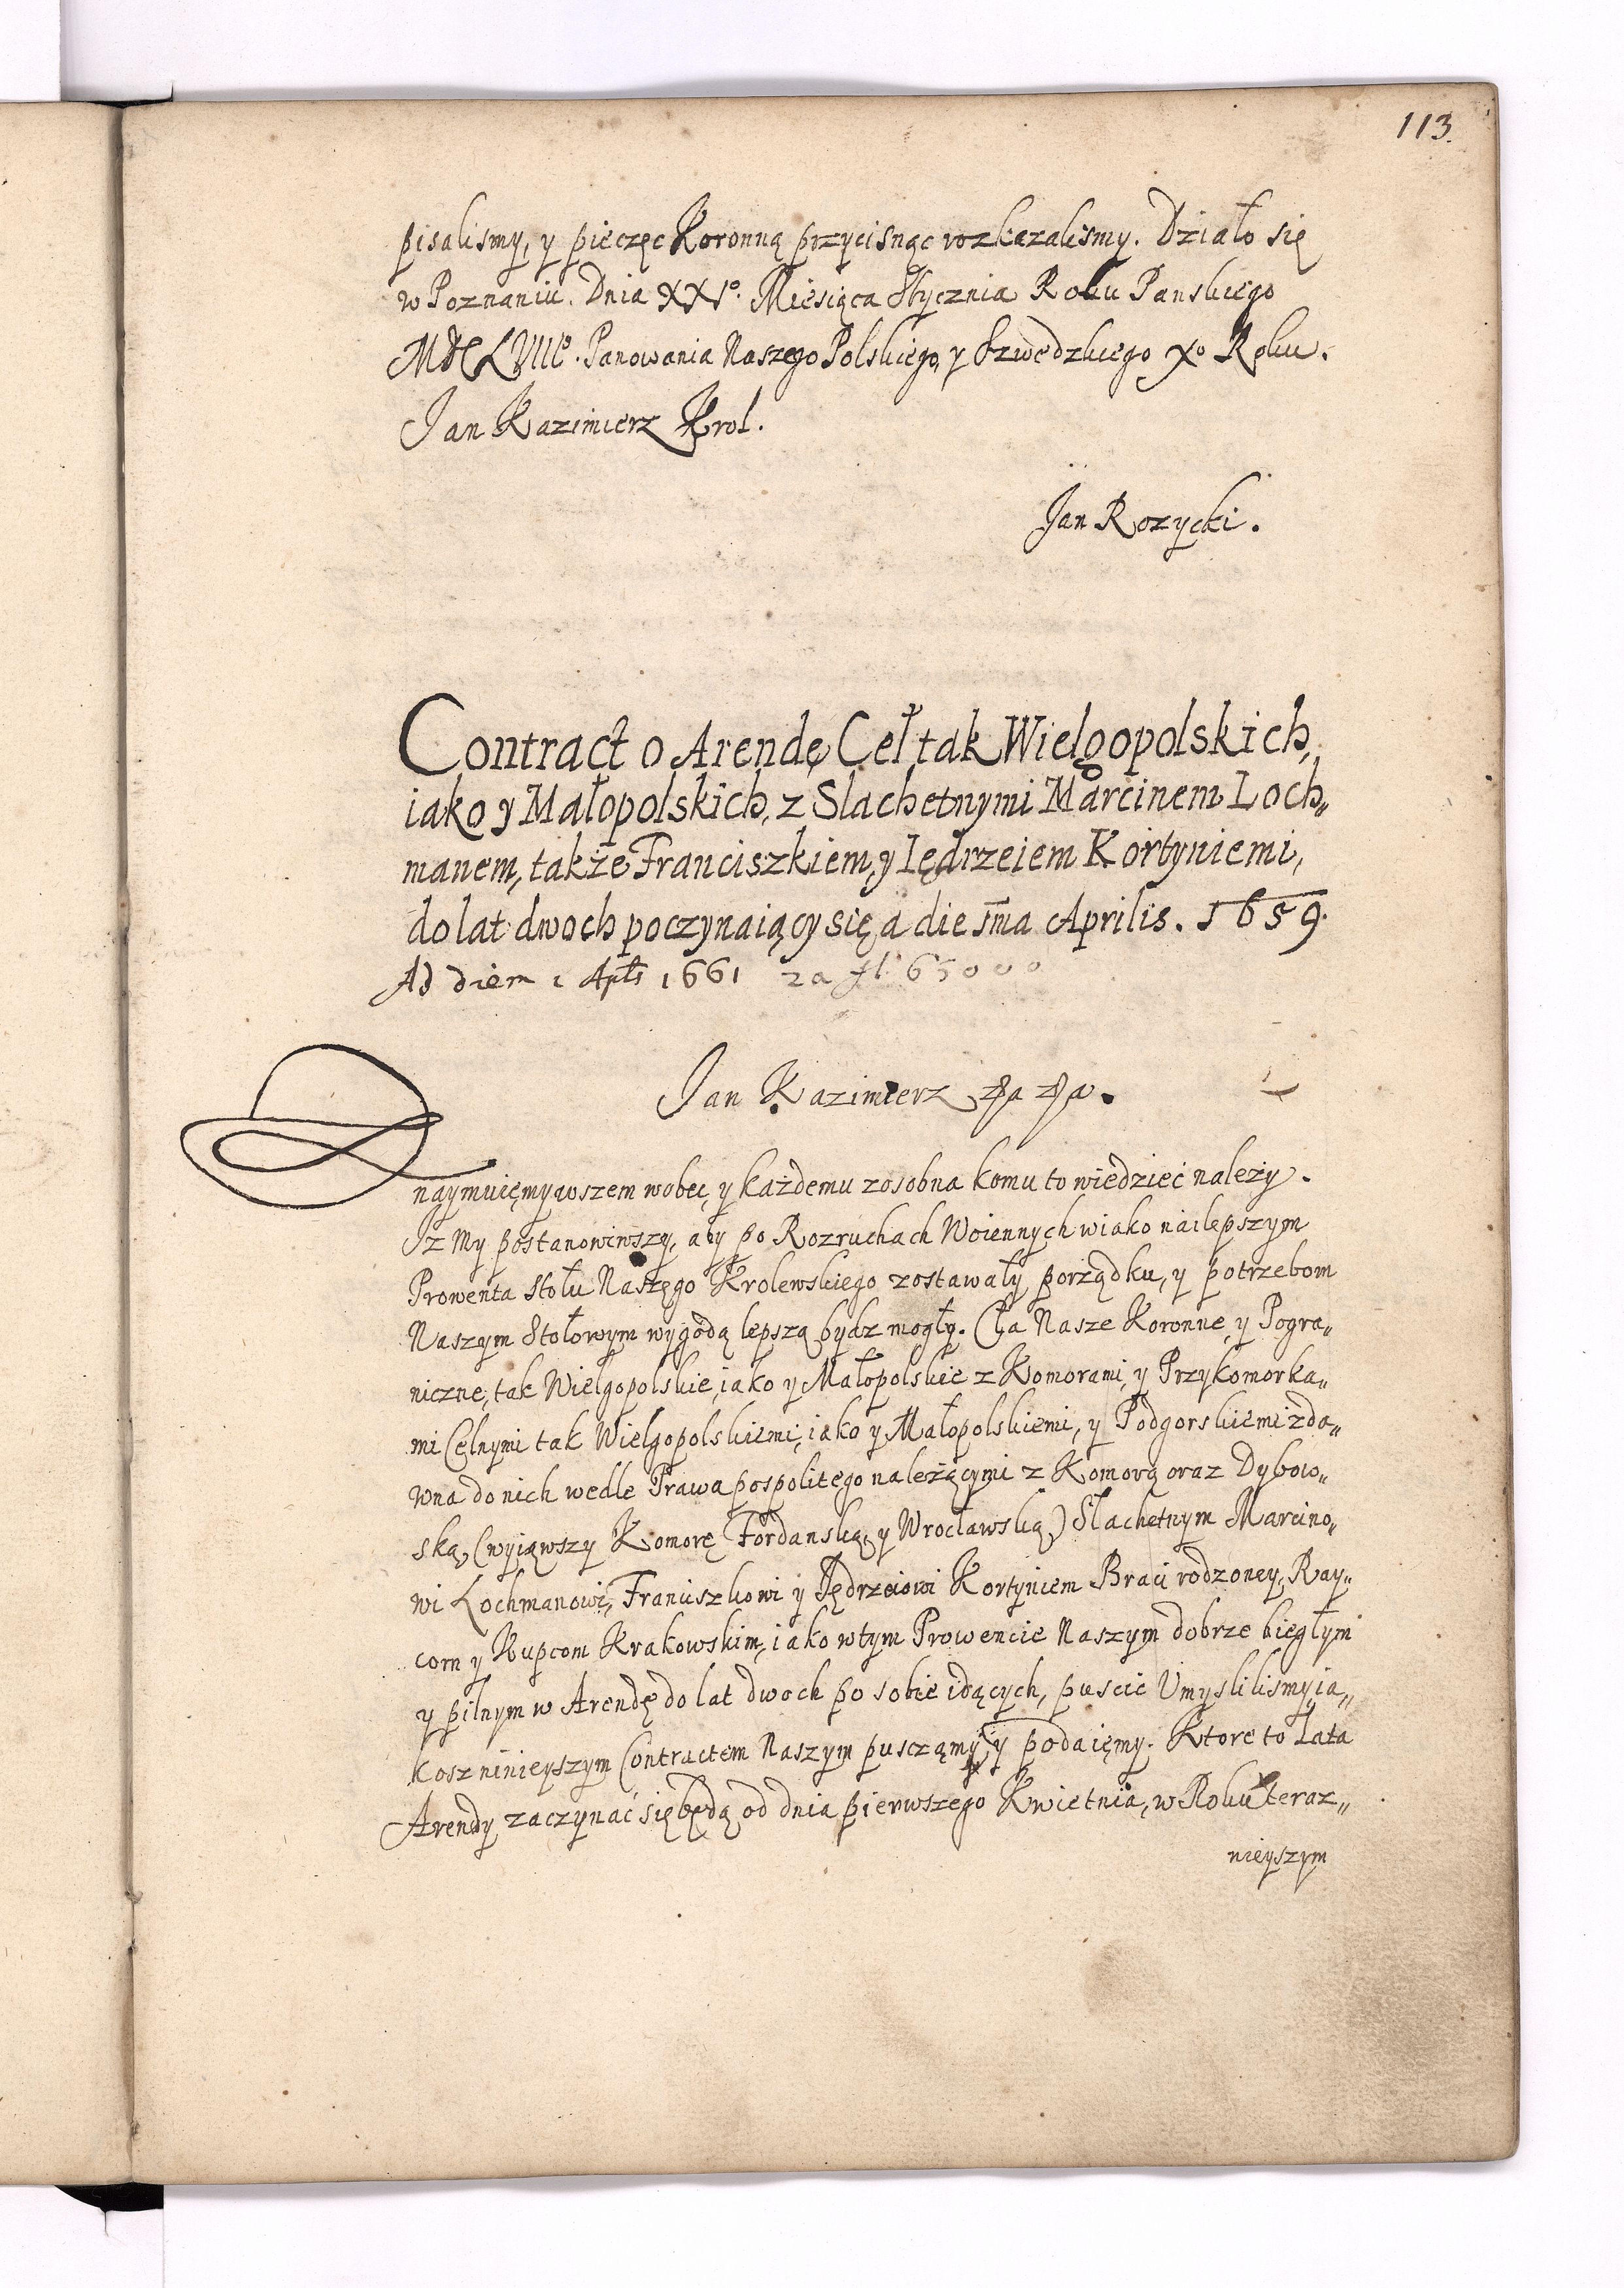 113.
pisalismy, y pieczęc Koronną przycisnąc rozkazalismy. Działo się
w Poznaniu. Dnia XXIº. Miesiąca Stycznia Roku Panskiego
MDCLVIIIº. Panowania Naszego Polskiego, y Szwedzkiego Xº Roku.
Jan Kazimierz Krol.
Jan Rozycki.
Contract o Arendę Ceł tak Wielgopolskich,
iako y Małopolskich, z Slachetnymi Marcinem Loch„
manem, także Franciszkiem, y Iędrzeiem Kortyniemi,
do lat dwoch poczynaiący się a die 1ma Aprilis. 1659.
Ad diem 1 Aplis 1661 za fl 65000
Jan Kazimierz
Oznaymuięmy wszem wobec, y każdemu zosobna komu to wiedzieć należy.
Iz My postanowiwszy, aby po Rozruchach Woiennych w iako nailepszym
Prowenta Stołu Naszego Krolewskiego zostawały porządku, y potrzebom
Naszym Stołowym wygodą lepszą bydz mogły. Cła Nasze Koronne, y Pogra„
niczne, tak Wielgopolskie, iako y Małopolskie z Komorami, y Przykomorka„
mi Celnymi tak Wielgopolskiemi, iako y Małopolskiemi, y Podgorskiemi zda„
wna do nich wedle Prawa pospolitego należącymi z Komorą oraz Dybow„
ską, (wyiąwszy Komorę Fordanską, y Wrocławską) Slachetnym Marcino„
wi Lochmanowi, Franciszkowi y Jędrzeiowi Kortyniem Braci rodzoney, Ray„
com y Kupcom Krakowskim, iako w tym Prowencie Naszym dobrze biegłym
y pilnym w Arendę do lat dwoch po sobie idących, puscic Umyslilismy, ia„
kosz ninieyszym Contractem Naszym pusczamy, y podaięmy. Ktore to Lata
Arendy zaczynać się będą od dnia pierwszego Kwietnia, w Roku teraz„
nieyszym